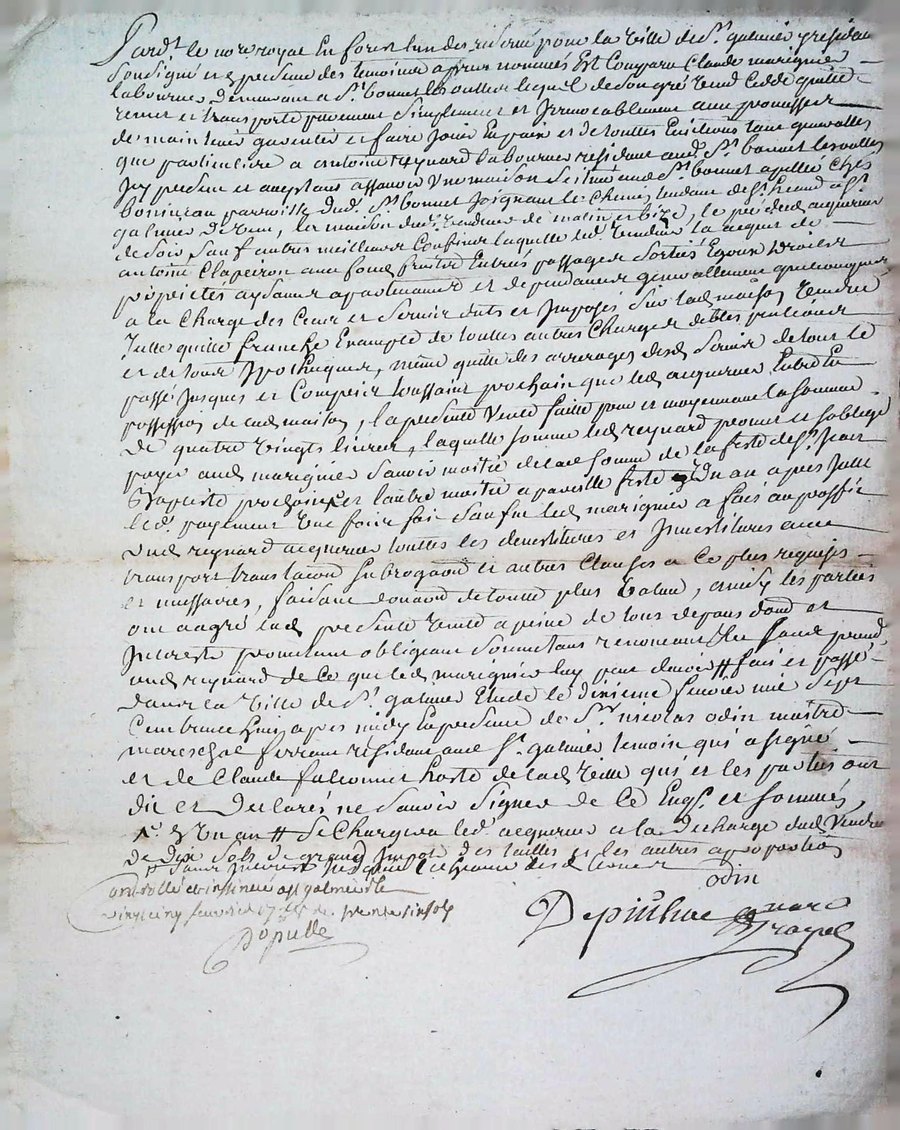 Pard.t le no.re royal En forest l'un des reservé pour la ville de S.t galmier y residant
soussigné et En presence des temoins apres nommés Est Comparu Claude marignier
laboureur demeurant a S.t bonnet les oulles lequel de son gré vend cedde quitte
remet et transporte purement simplement et Irrevocablement avec promesses
de maintenir garentir et faire Jouir En paix et de touttes Evictions tant generalles
que particuliere a antoine reynard laboureur residant aud. S.t bonnet les oulles
Icy present et acceptant assavoir une maison scituée aud S.t bonnet appellée chés
parroisse dud. S.t bonnet Joignant le chemin tendant de S.t heand a S.t
galmier de vent, la maison dud. vendeur de matin et bize, le pré dud acquereur
de soir sauf autres meilleurs Confins laquelle led. vendeur la acquit de
antoine Clapeiron avec fonds Entrées passages sorties Egoux droits
propriétés aysances apartenances et dependances generallement quelconques
a la Charge des Cens et servis duts et Imposés sur lad maison vendue
Jutte quitte franche Exampte de touttes autres Charges debtes
et de tous hypotheques, même quitte des arrerages desd servis de tout le
passé Jusques et Compris toussaint prochain que led acquereur Entre En
possession de lad maison, la presente vente faitte pour et moyennant la somme
de quatre vingts livres, laquelle somme led reynard promet et s'oblige
payer aud marignier savoir moitié de lad somme de la feste de S.t Jean
Baptiste prochaine et l'autre moitié a pareille feste d'un an apres
led. payement une fois fait sauf led marignier a fait au proffit
dud reynard acquereur touttes les demestitures et Investitures avec
transport translation subrogaon et autres Clauses a Ce plus requises
et necessaires, faisant donaon de toutte plus value, ainsy les parties
ont aagré lad presente vente a peine de tous depans dom et
Interests promettant obligeant soumettant renoncant
aud reynard de Ce que led marignier luy peut devoir # fait et passé
dans la ville de S.t galmier Etude le dixieme fevrier mil sept
Cent trente huit apres midy En presence de S.r nicolas odin maitre
mareschal ferrant residant aud S.t galmier temoin qui a signé
et de Claude falconnet hoste de lad ville qui et les parties ont
dit et declarés ne savoir signer de Ce Enqs. et sommés
d'un an # se Chargera led. acquereur a la decharge dud vendeur
de dix sols de grand Impot des tailles et les autres a proportion
odin
Controllé et insinué a S.t galmier le
vingt cinq fevrier 1738 trente six sols
Populle
no.re royal